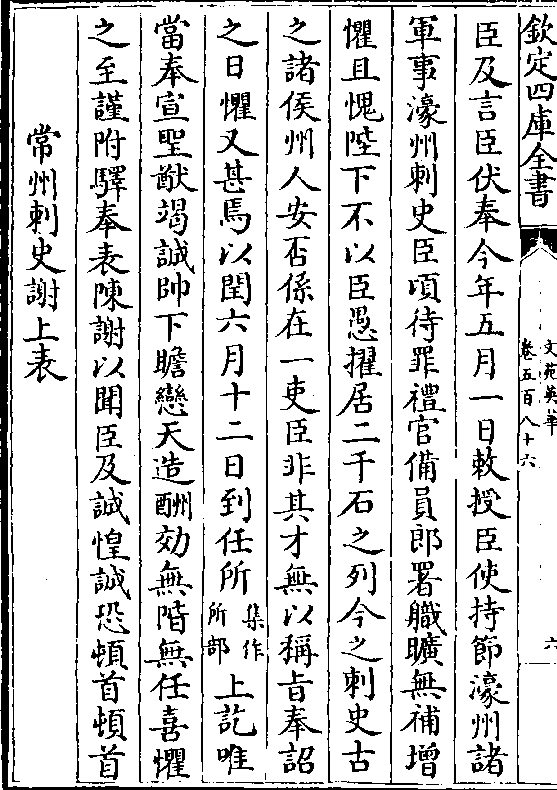 欽定四庫全書
文苑英華
卷五百八十六
六
臣及言臣伏奉今年五月一日敕授臣使持節濠州諸
軍事濠州刺史臣頃待罪禮官備員郎署職曠無補增
懼且愧陛下不以臣愚擢居二千石之列今之刺史古
之諸侯州人安否係在一吏臣非其才無以稱㫖奉詔
之日懼又甚焉以閏六月十二日到任所集作所部上訖唯
當奉宣聖猷竭誠帥下瞻戀天造酬効無階無任喜懼
之至謹附驛奉表陳謝以聞臣及誠惶誠恐頓首頓首
常州刺史謝上表